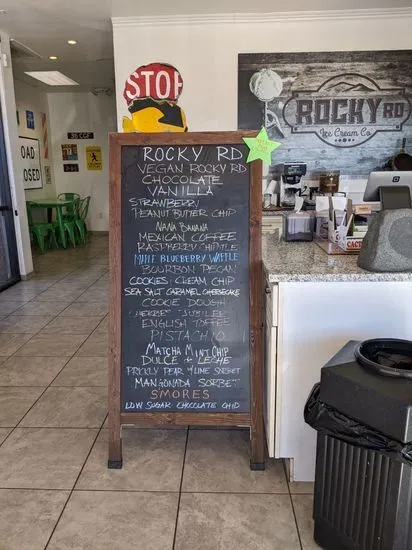 STOP
ROCKY RD
Ice Cream Co
OAD
OSED
ROCKY RD
VEGAN ROCKY RD
CHOCOLATE
VANILLA
STRAWBERRY
PEANUT BUTTER CHIP
NANA BANANA
MEXICAN COFFEE
RASPBERRY CHIPOTLE
BLUEBERRY WAFFLE
BOURBON PECAN
COOKIES & CREAM CHIP
SEA SALT CARAMEL CHEESECAKE
COOKIE DOUGH
JUBILEE
ENGLISH TOFFEE
PISTACHIO
MATCHA MINT CHIP
DULCE de LECHE
PRICKLY PEAR & LIME SORBET
MANGONADA SORBET
S'MORES
LOW SUGAR CHOCOLATE CHIP